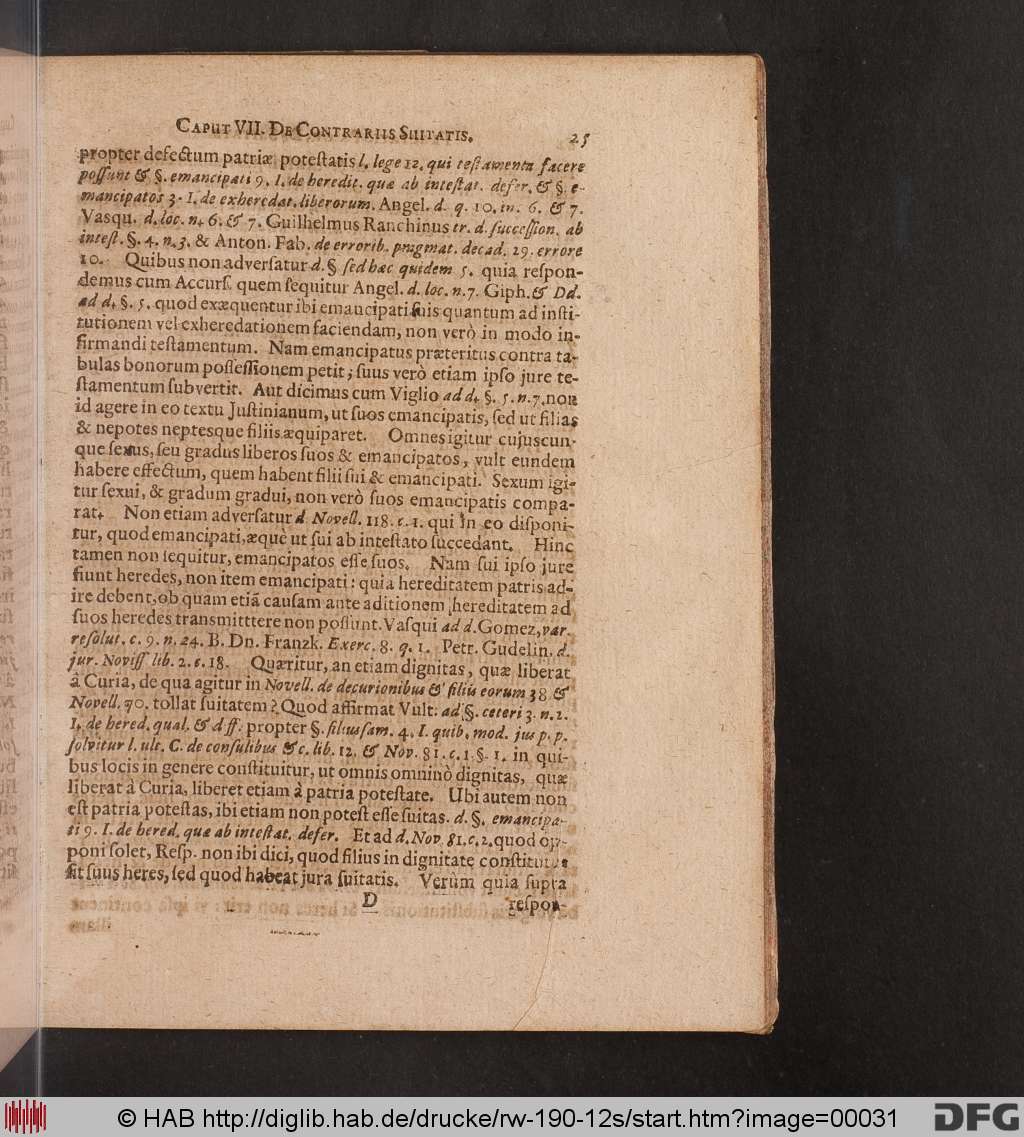 CAPUT VII. DE CONTRARIIS SUITATIS. 25
propter defectum patriæ poteſtatis l. lege 12. qui teſtamenta facere
poſſunt & §. emancipati 9. I. de heredit. quæ ab inteſtat. defer. & §. e-
mancipatos 3. I. de exheredat. liberorum. Angel. d. q. 10. in. 6. & 7.
Vasqu. d. loc. n. 6. & 7. Guilhelmus Ranchinus tr. d. ſucceſſion. ab
inteſt. §. 4. n. 3. & Anton. Fab. de errorib. pragmat. decad. 29. errore
10. Quibus non adverſatur d. § ſed hæc quidem 5. quia reſpon-
demus cum Accurſ. quem ſequitur Angel. d. loc. n. 7. Giph. & Dd.
ad d. §. 5. quod exæquentur ibi emancipati ſuis quantum ad inſti-
tutionem vel exheredationem faciendam, non verò in modo in-
firmandi teſtamentum. Nam emancipatus præteritus contra ta-
bulas bonorum poſſeſſionem petit; ſuus verò etiam ipſo jure te-
ſtamentum ſubvertit. Aut dicimus cum Viglio ad d. §. 5. n. 7. non
id agere in eo textu Juſtinianum, ut ſuos emancipatis, ſed ut filias
& nepotes neptesque filiis æquiparet. Omnes igitur cujuscun-
que ſexus, ſeu gradus liberos ſuos & emancipatos, vult eundem
habere effectum, quem habent filii ſui & emancipati. Sexum igi-
tur ſexui, & gradum gradui, non verò ſuos emancipatis compa-
rat. Non etiam adverſatur d. Novell. 118. c. 1. qui in eo diſponi-
tur, quod emancipati, æquè ut ſui ab inteſtato ſuccedant. Hinc
tamen non ſequitur, emancipatos eſſe ſuos. Nam ſui ipſo jure
fiunt heredes, non item emancipati: quia hereditatem patris ad-
ire debent, ob quam etiã cauſam ante aditionem hereditatem ad
ſuos heredes transmitttere non poſſunt. Vaſqui ad d. Gomez, var.
reſolut. c. 9. n. 24. B. Dn. Franzk. Exerc. 8. q. 1. Petr. Gudelin. d.
jur. Noviſſ lib. 2. c. 18. Quæritur, an etiam dignitas, quæ liberat
â Curia, de qua agitur in Novell. de decurionibus & filiis eorum 38 &
Novell. 70. tollat ſuitatem? Quod affirmat Vult. ad §. ceteri 3. n. 2.
I. de hered. qual. & diff. propter §. filiusfam. 4. I. quib. mod. jus p. p.
ſolvitur l. ult. C. de conſulibus &c. lib. 12. & Nov. 81. c. 1. §. 1. in qui-
bus locis in genere conſtituitur, ut omnis omninò dignitas, quæ
liberat â Curia, liberet etiam à patria poteſtate. Ubi autem non
eſt patria poteſtas, ibi etiam non poteſt eſſe ſuitas. d. §. emancipa-
ti 9. I. de hered. quæ ab inteſtat. defer. Et ad d. Nov. 81. c. 2. quod op-
poni ſolet, Reſp. non ibi dici, quod filius in dignitate conſtitutus
ſit ſuus heres, ſed quod habeat jura ſuitatis. Verùm quia ſupra
D reſpon-
© HAB http://diglib.hab.de/drucke/rw-190-12s/start.htm?image=00031
DFG